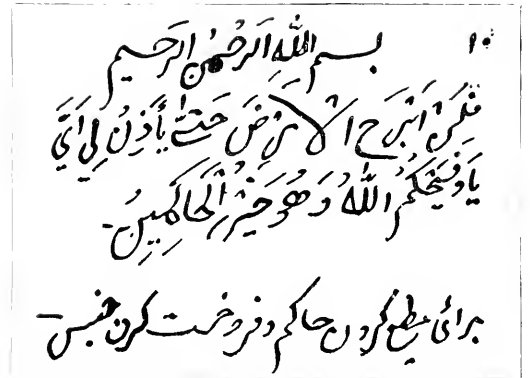 ۱۰
بسم اللهِ اَلرَحْمٰنِ الرَحِيم
فَلَنْ اَبْرَحَ الْاَرْضَ حَتّٰى يَأذِنُ لِي اَبِيَّ
يَاوَفَيَحْكُمُ اللهُ وَهُوَ خَيْرُ الْحَاكِمِينُ۔
برائی مطیع کردن حاکم و فروخت کردن جنس —